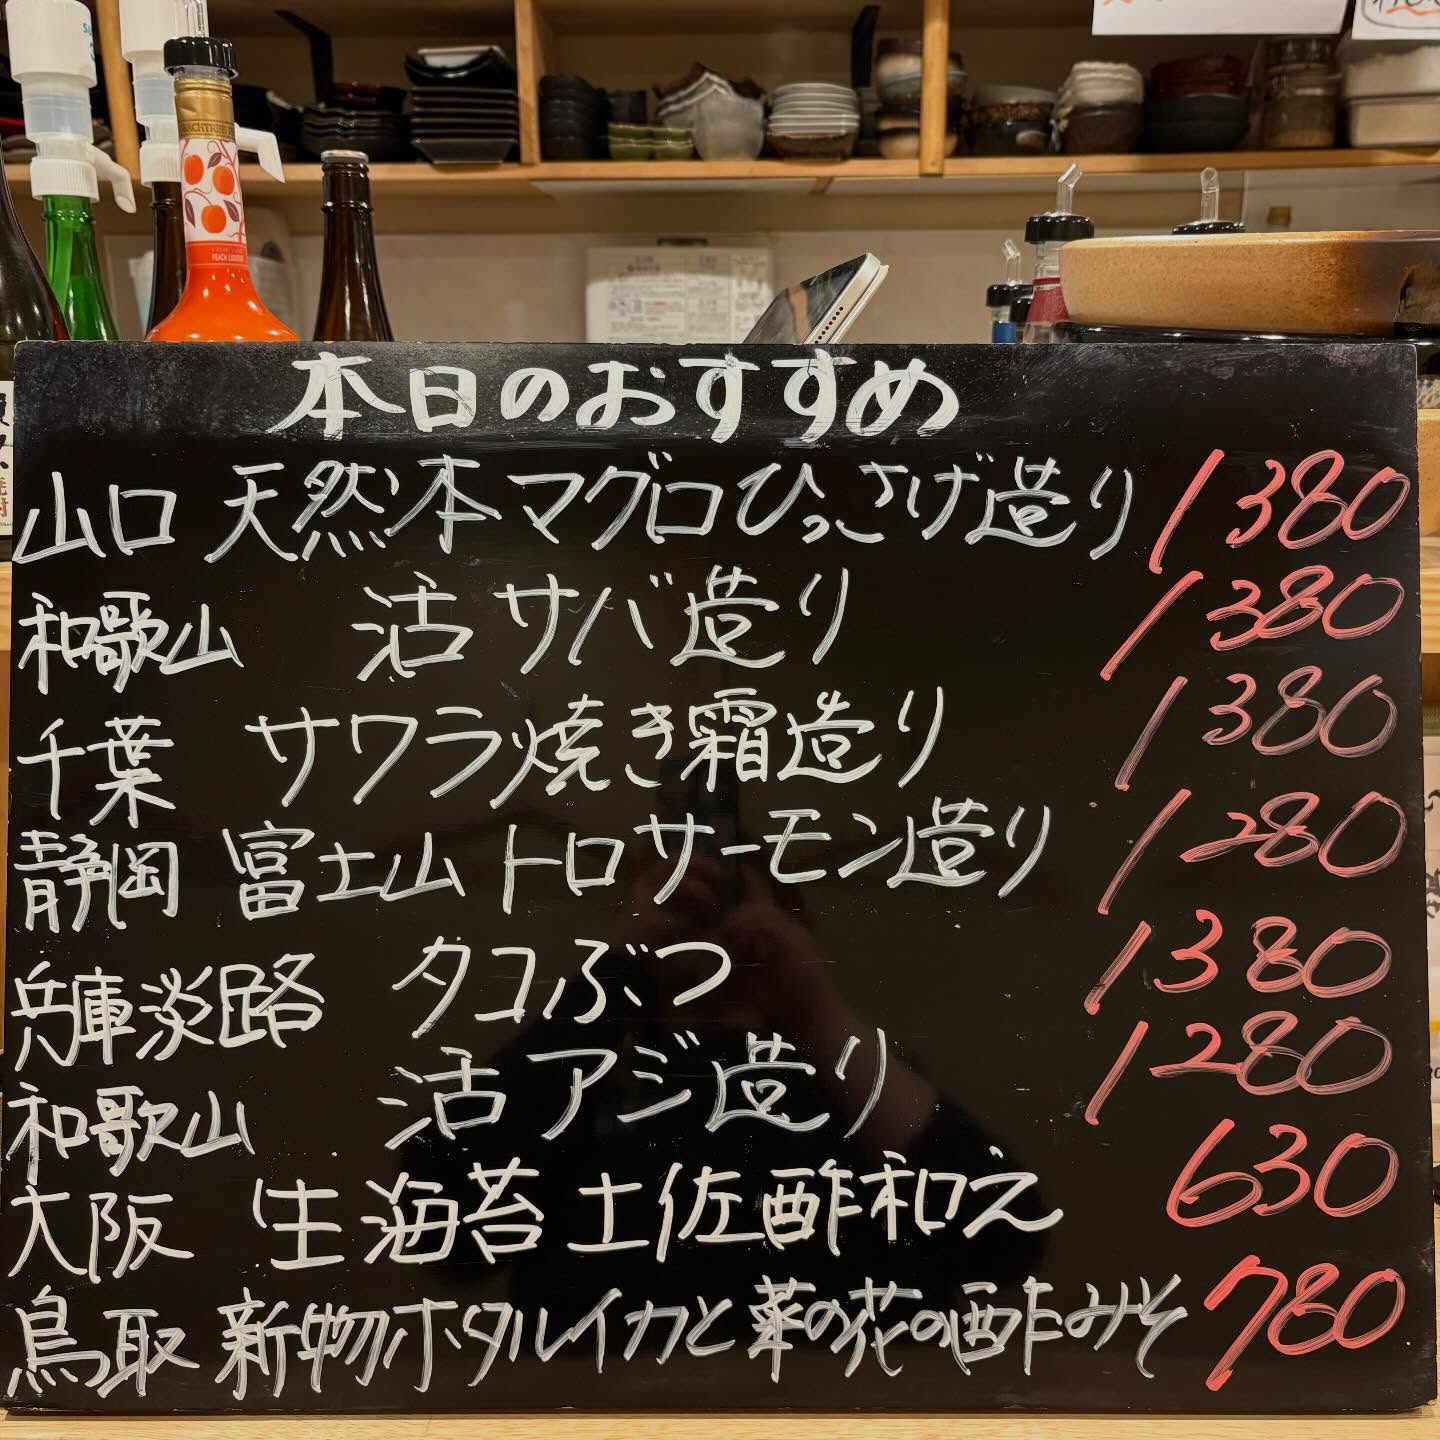 本日のおすすめ
山口 天然本マグロひっさげ造り 1380
和歌山 活サバ造り 1380
千葉 サワラ焼き霜造り 1380
静岡 富士山トロサーモン造り 1280
兵庫淡路 タコぶつ 1380
和歌山 活アジ造り 1280
大阪 生海苔土佐酢和え 630
鳥取 新物ホタルイカと菜の花の酢みそ 780
PEACH LIQUEUR